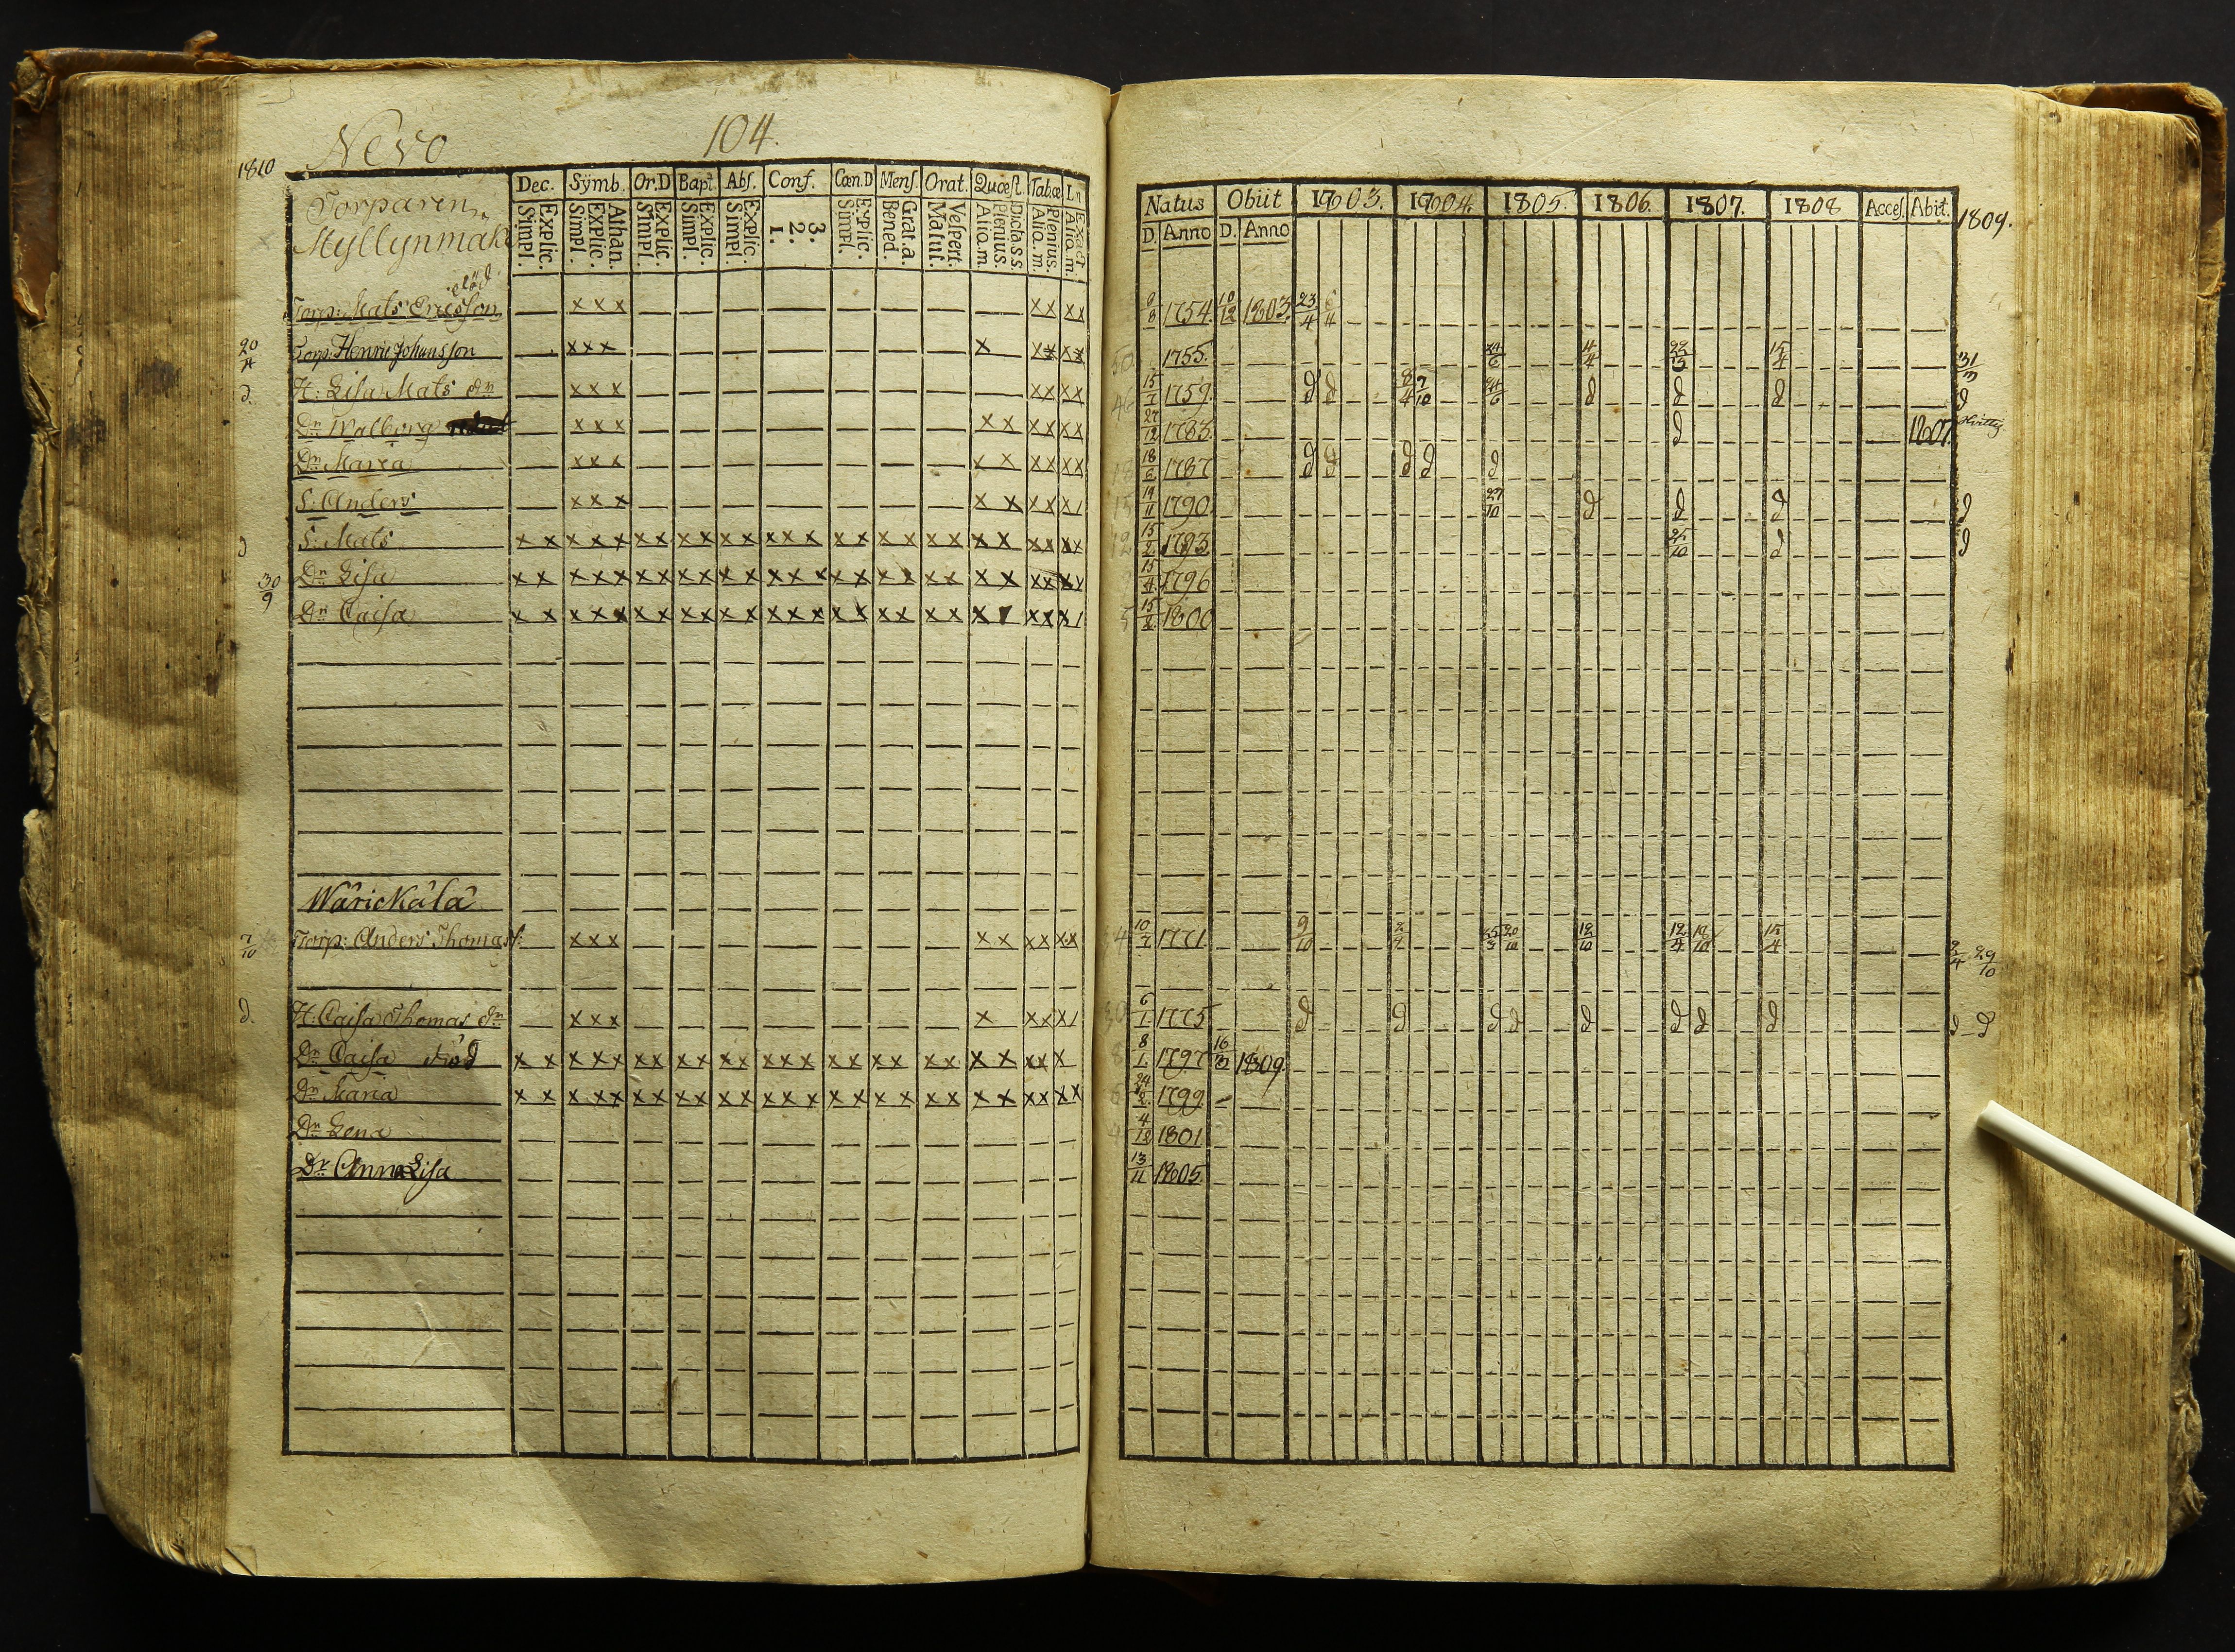 Nevo 104.
1810
Torparen
Myllynmäki
Dec. Symb. Or.D Bapt. Abs. Conf. Cœn.D Mens. Orat. Quœst. Tabœ L.n
Simpl. Explic. Simpl. Explic. Athan. Simpl. Explic. Simpl. Explic. Simpl. Explic. 1. 2. 3. Simpl. Explic. Bened. Grat.a. Matut. Vespert. Aliq.m. Plenius. Dicta.s.s. Aliq.m. Plenius. Aliq.m. Exact
död
Torp: Mats Ericsson — x x x — — — — — — — — x x x x
20/4 Torp: Henric Johansson — x x x — — — — — — — x x x x x
d. H: Lisa Mats dr — x x x — — — — — — — — x x x x
Dr Walborg — x x x — — — — — — — x x x x x x
Dr Maria — x x x — — — — — — — x x x x x x
S: Anders — x x x — — — — — — — x x x x x /
d S: Mats x x x x x x x x x x x x x x x x x x x x x x x x x x x
30/9 Dr Lisa x x x x x x x x x x x x x x x x x x x x x x x x x x x
Dr Caisa x x x x x x x x x x x x x x x x x x x x x x x x x x /
Wärickälä
7/10 Torp: Anders Thomass: — x x x — — — — — — — x x x x x x
d. H. Caisa Thomas dr — x x x — — — — — — — x x x x /
Dr Caisa död x x x x x x x x x x x x x x x x x x x x x x x x x x
Dr Maria x x x x x x x x x x x x x x x x x x x x x x x x x x x
Dr Lena
Dr Anna Lisa
Natus Obiit 1803. 1804. 1805. 1806. 1807. 1808 Acces. Abit. 1809.
D. Anno D. Anno
1754. 10/12 1803. 23/4
50 1755. 24/6 14/4 22/3 15/4 31/3
46 15/7 1759. d d 8/4 7/10 24/6 d d d d
27/12 1783. d 1807.
18 18/6 1787 d d d d d
15 14/11 1790. 27/10 d d d d
12 15/2 1793. 25/10 d d
15/4 1796
5 15/2 1800
34 10/7 1771. 9/10 2/4 25/3 20/10 12/10 12/4 18/10 15/4 3/4 29/10
30 6/1 1775 d d d d d d d d d d
8 8/1. 1797 16/3 1809.
6 24/2 1799
4 4/12 1801
13/11 1805.